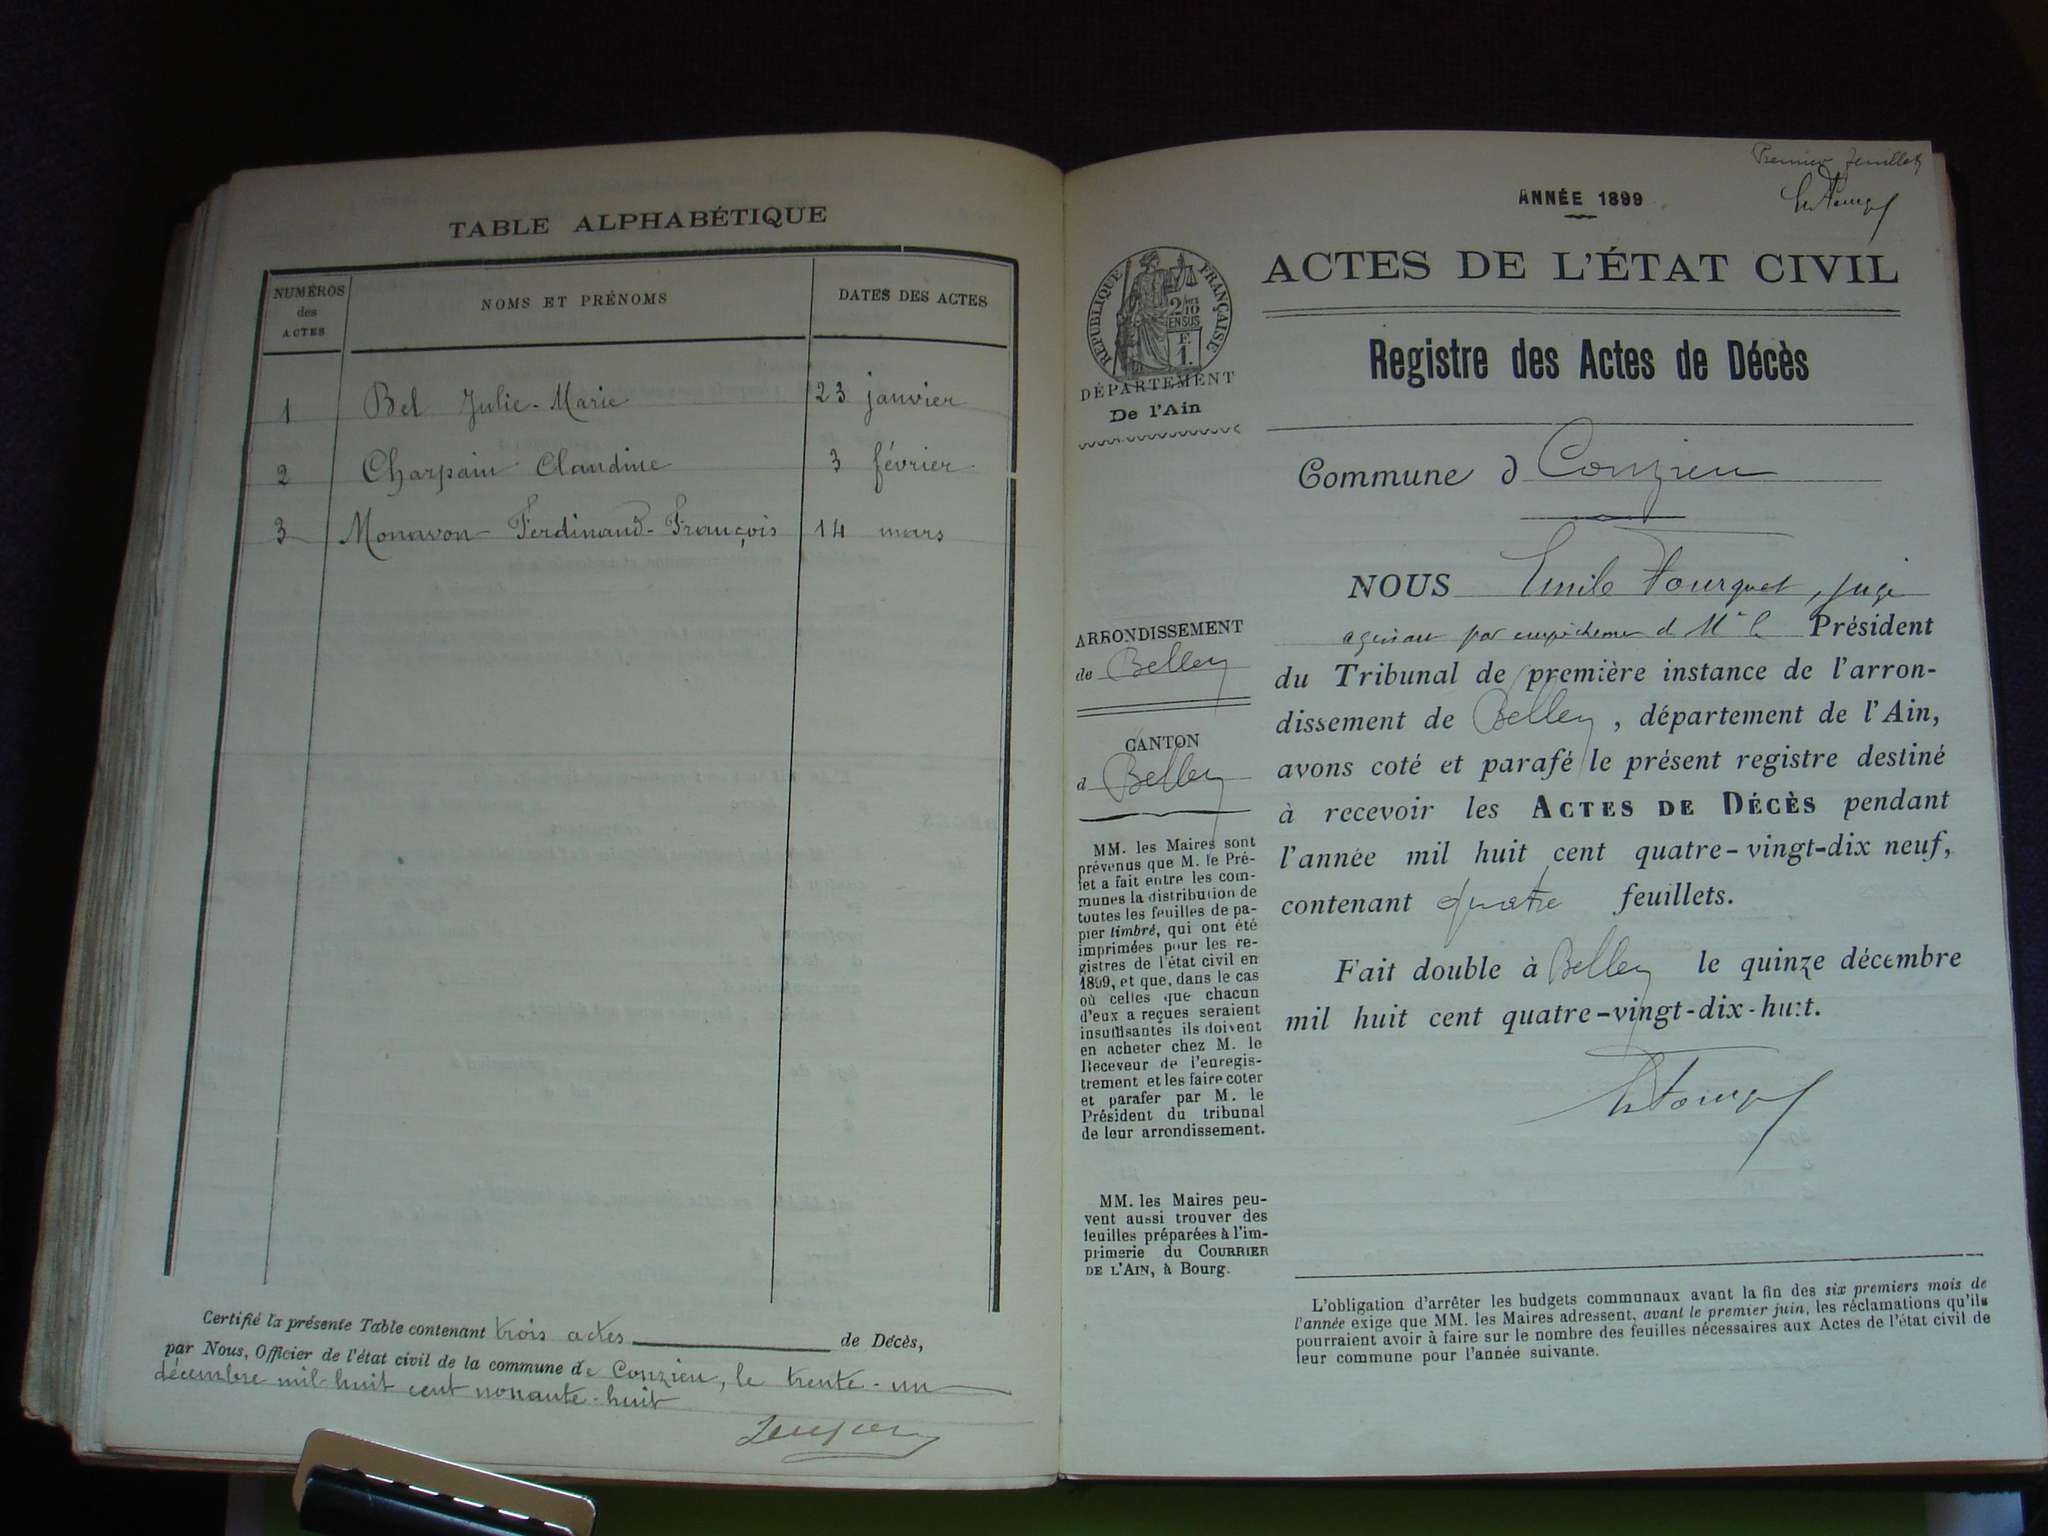 TABLE ALPHABÉTIQUE
NUMÉROS des ACTES
NOMS ET PRÉNOMS
DATES DES ACTES
1 Bel Julie-Marie 23 janvier
2 Charpain Claudine 3 février
3 Monavon Ferdinand-François 14 mars
Certifié la présente Table contenant trois actes de Décès,
par Nous, Officier de l'état civil de la commune de Conzieu, le trente-un
décembre mil huit cent nonante-huit
Premier feuillet
ANNÉE 1899
ACTES DE L'ÉTAT CIVIL
RÉPUBLIQUE FRANÇAISE
2/10
EN SUS
F.
1.
DÉPARTEMENT
De l'Ain
Registre des Actes de Décès
Commune d Conzieu
NOUS Emile Fourquet, juge
agissant par empêchement d Mr le Président
du Tribunal de première instance de l'arron-
dissement de Belley, département de l'Ain,
avons coté et parafé le présent registre destiné
à recevoir les ACTES DE DÉCÈS pendant
l'année mil huit cent quatre-vingt-dix neuf,
contenant quatre feuillets.
Fait double à Belley le quinze décembre
mil huit cent quatre-vingt-dix-huit.
ARRONDISSEMENT
de Belley
CANTON
d Belley
MM. les Maires sont
prévenus que M. le Pré-
fet a fait entre les com-
munes la distribution de
toutes les feuilles de pa-
pier timbré, qui ont été
imprimées pour les re-
gistres de l'état civil en
1899, et que, dans le cas
où celles que chacun
d'eux a reçues seraient
insuffisantes ils doivent
en acheter chez M. le
Receveur de l'enregis-
trement et les faire coter
et parafer par M. le
Président du tribunal
de leur arrondissement.
MM. les Maires peu-
vent aussi trouver des
feuilles préparées à l'im-
primerie du COURRIER
DE L'AIN, à Bourg.
L'obligation d'arrêter les budgets communaux avant la fin des six premiers mois de
l'année exige que MM. les Maires adressent, avant le premier juin, les réclamations qu'ils
pourraient avoir à faire sur le nombre des feuilles nécessaires aux Actes de l'état civil de
leur commune pour l'année suivante.